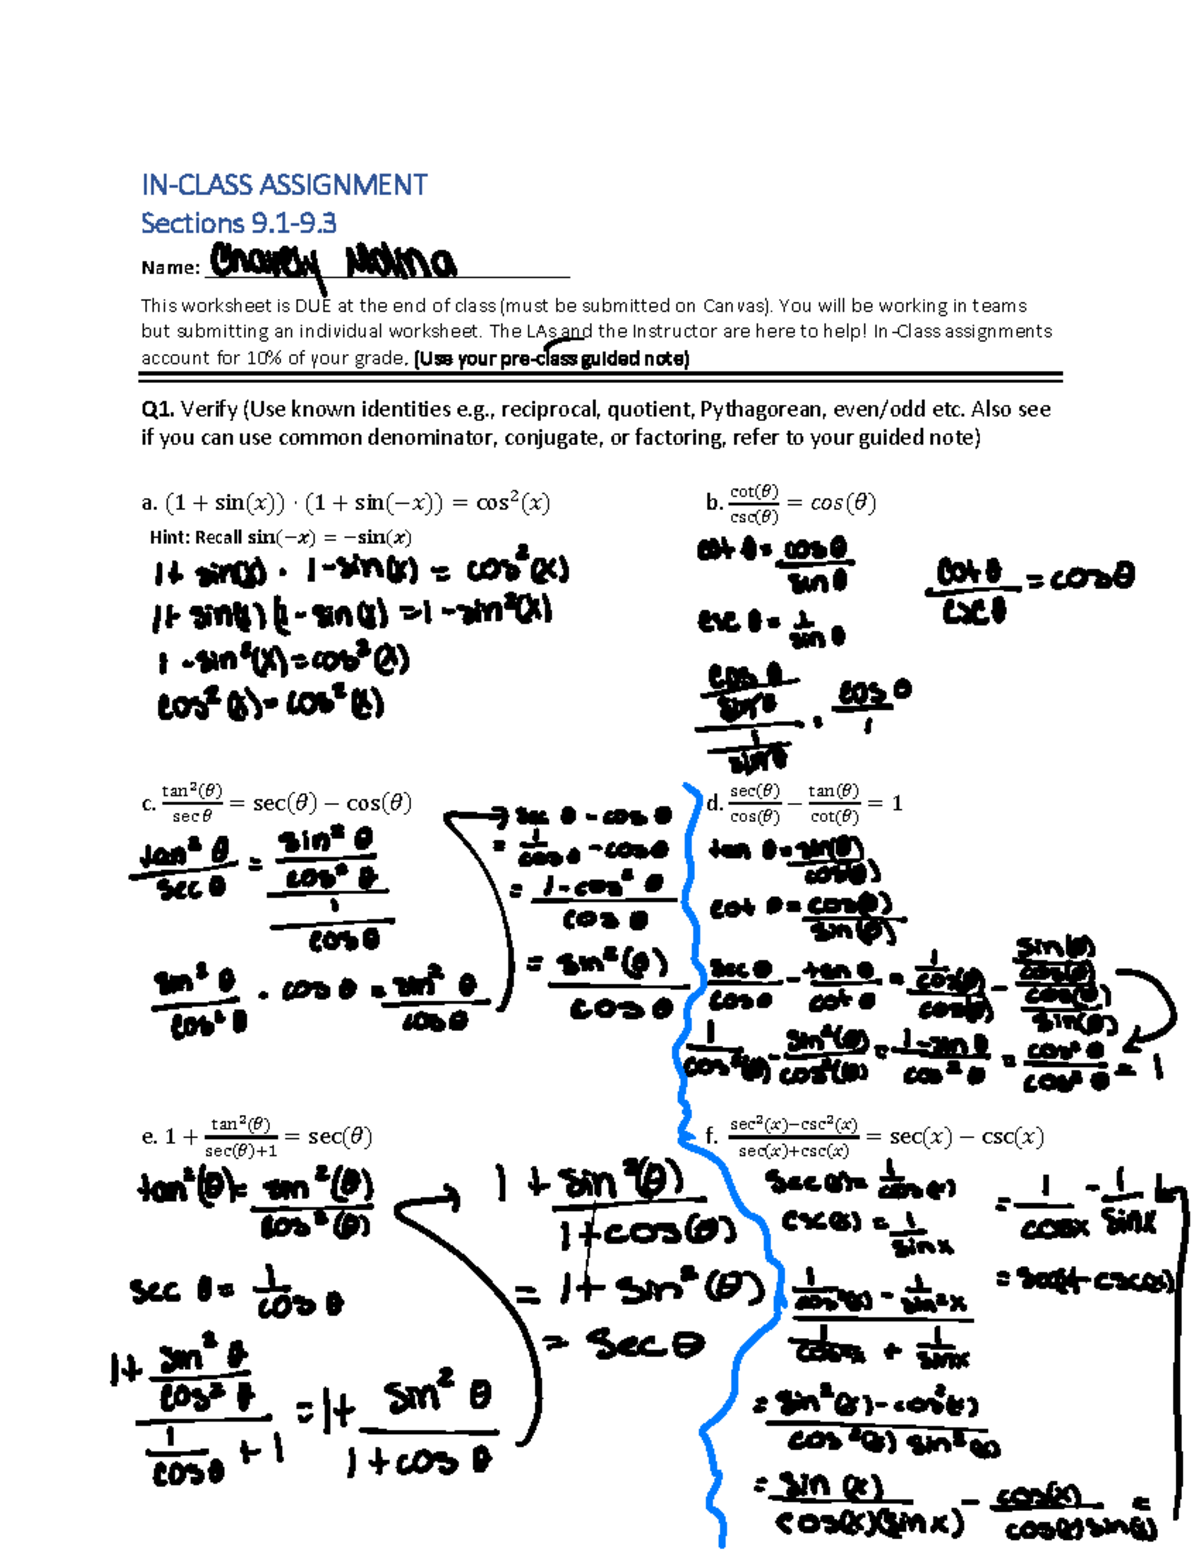 IN-CLASS ASSIGNMENT
Sections 9.1-9.3
Name: Charely Molina
This worksheet is DUE at the end of class (must be submitted on Canvas). You will be working in teams
but submitting an individual worksheet. The LAs and the Instructor are here to help! In-Class assignments
account for 10% of your grade. (Use your pre-class guided note)
Q1. Verify (Use known identities e.g., reciprocal, quotient, Pythagorean, even/odd etc. Also see
if you can use common denominator, conjugate, or factoring, refer to your guided note)
a. (1 + sin(x)) · (1 + sin(−x)) = cos²(x)
Hint: Recall sin(−x) = −sin(x)
1+ sin(x) · 1-sin(x) = cos²(x)
1+ sin(x) (1 - sin(x) = 1 - sin²(x)
1 - sin²(x) = cos²(x)
cos²(x) = cos²(x)
b. cot(θ)/csc(θ) = cos(θ)
cot θ = cos θ/sin θ
cot θ/csc θ = cos θ
csc θ = 1/sin θ
cos θ/sin θ / 1/sin θ = cos θ/1
c. tan²(θ)/sec θ = sec(θ) − cos(θ)
tan² θ/sec θ = sin² θ/cos² θ / 1/cos θ
sin² θ/cos² θ · cos θ = sin² θ/cos θ
sec θ - cos θ
= 1/cos θ - cos θ
= 1 - cos² θ/cos θ
= sin²(θ)/cos θ
d. sec(θ)/cos(θ) − tan(θ)/cot(θ) = 1
tan θ = sin(θ)/cos(θ)
cot θ = cos(θ)/sin(θ)
sec θ/cos θ - tan θ/cot θ = 1/cos(θ) / cos(θ) - sin(θ)/cos(θ) / cos(θ)/sin(θ)
1/cos²(θ) - sin²(θ)/cos²(θ) = 1-sin θ/cos² θ = cos² θ/cos² θ = 1
e. 1 + tan²(θ)/sec(θ)+1 = sec(θ)
tan²(θ) = sin²(θ)/cos²(θ)
sec θ = 1/cos θ
1+ sin² θ/cos² θ / 1/cos θ + 1 = 1+ sin² θ/1+cos θ
1 + sin²(θ)/1+cos(θ)
= 1+ sin²(θ)
= sec θ
f. sec²(x)−csc²(x)/sec(x)+csc(x) = sec(x) − csc(x)
sec(x) = 1/cos(x)
csc(x) = 1/sin x
1/cos²(x) - 1/sin² x / 1/cos x + 1/sin x
= sin²(x) - cos²(x)/cos²(x) sin²(x)
= sin(x)/cos(x)(sin x) - cos(x)/cos(x) sin(x) =
= 1/cos x - 1/sin x
= sec(x) - csc(x)